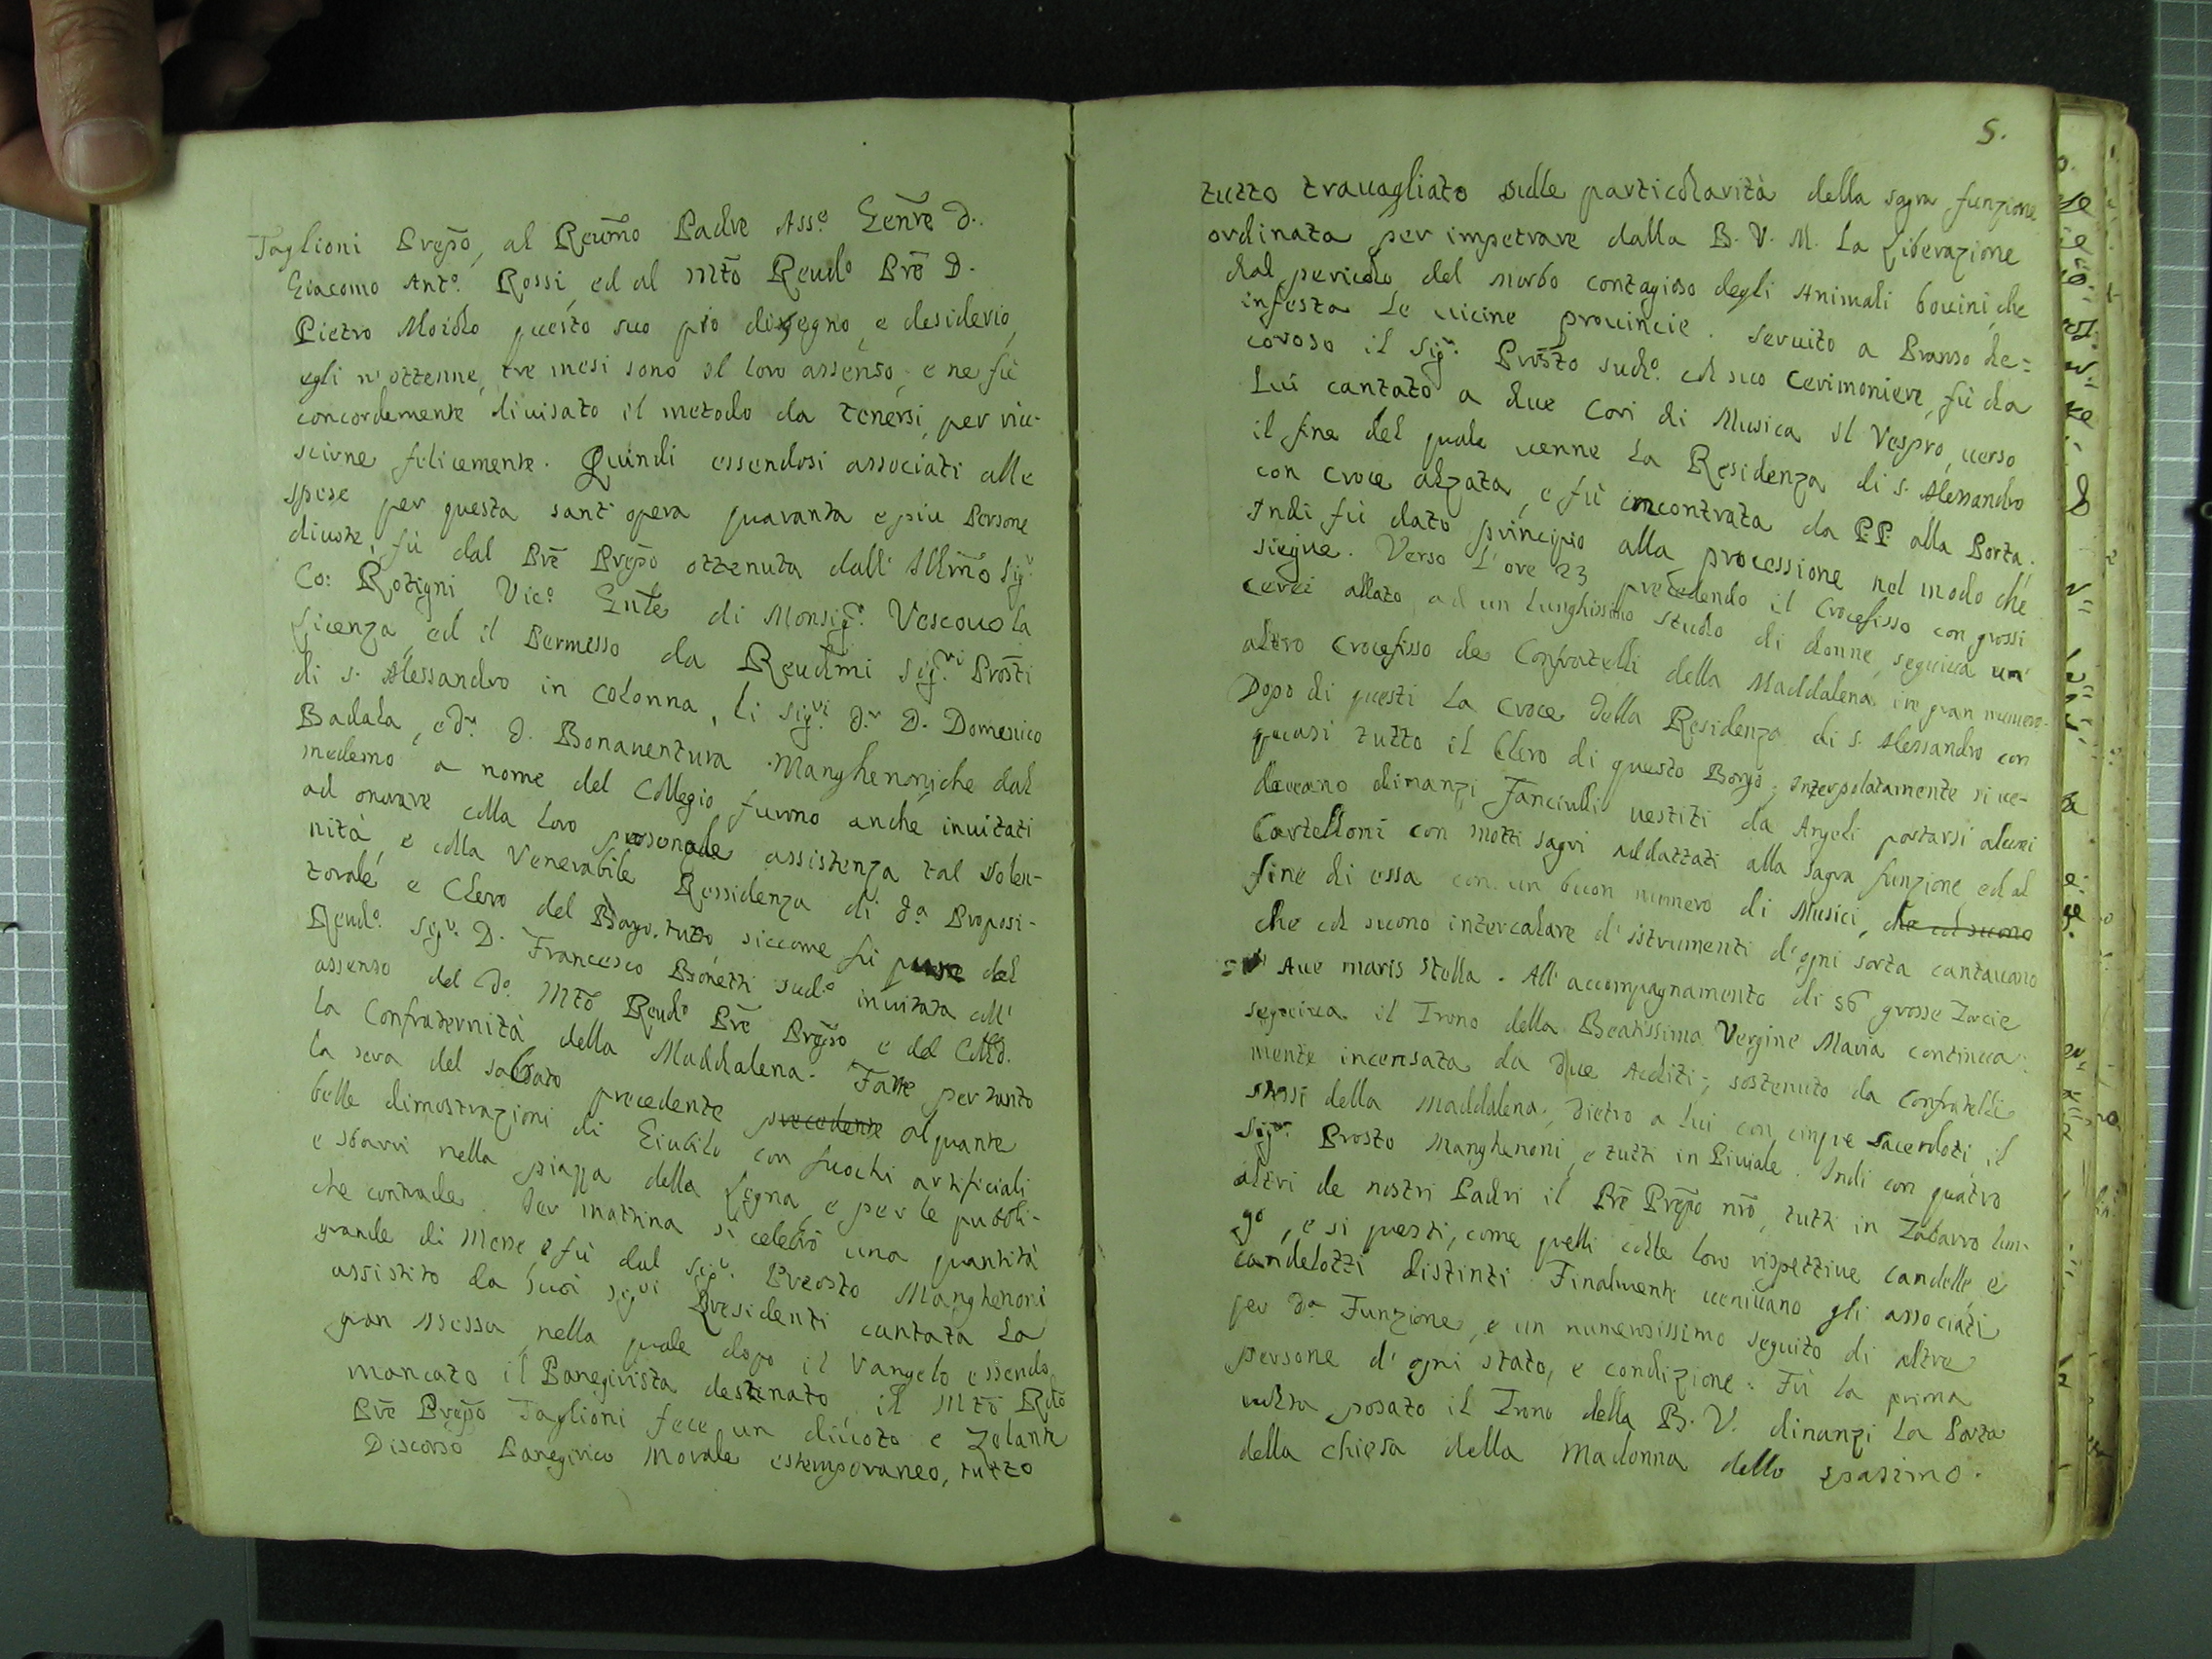 Taglioni Prepo, al Reumo Padre Asse Genre D.
Giacomo Anto. Rossi, ed al Mto Reudo Pre D.
Pietro Moiolo questo suo pio disegno, e desiderio,
egli n'ottenne, tre mesi sono il loro assenso, e ne fù
concordemente diuisato il metodo da tenersi, per riu-
scirne felicemente. Quindi essendosi associati alle
spese per questa sant'opera quaranta e più Persone
diuote, fù dal Pre Prepo ottenuta dall' Illmo Sigr
Co: Rotigni Vico Gnle di Monsigr. Vescouo la
licenza, ed il Permesso da Reudmi Sigri Prosti
di S. Alessandro in Colonna, li Sigri Dr D. Domenico
Badala, e Dr. D. Bonauentura Manghenoni che dal
medemo a nome del Collegio furono anche inuitati
ad onorare colla loro personale assistenza tal solen-
nità, e colla Venerabile Ressidenza di da Proposi-
torale e Clero del Borgo, tutto siccome fù pure dal
Reudo Sigr. D. Francesco Bonetti sudo inuitata coll'
assenso del do Mto Reudo Pre Prepo e del Collo.
la Confraternità della Maddalena. Fatte per tanto
la sera del sabbato precedente precedente alquante
belle dimostrazioni di Giubilo con fuochi artificiali
e sbarri nella piazza della legna, e per le pubbli-
che contrade. Der mattina si celebrò una quantità
grande di Messe, e fù dal Sigr. Preosto Manghenoni
assistito da suoi Sigri Residenti cantata la
gran Messa, nella quale dopo il Vangelo essendo
mancato il Panegirista destinato il Mto Rdo
Pre Prepo Taglioni fece un diuoto e Zelante
Discorso Panegirico Morale estemporaneo, tutto
5.
tutto trauagliato sulle particolarità della sagra funzione
ordinata per impetrare dalla B. V. M. la liberazione
dal pericolo del morbo contagioso degli Animali bouini, che
infesta le uicine prouincie. Seruito a Pranso de-
coroso il Sigr. Prosto sudo. col suo Cerimoniere, fù da
Lui cantato a due Cori di Musica il Vespro, uerso
il fine del quale uenne la Residenza di S. Alessandro
con Croce alzata, e fù incontrata da PP. alla Porta.
Indi fù dato principio alla processione nel modo che
siegue. Verso l'ore 23 precedendo il Crocefisso con grossi
cerei allato, ad un lunghissimo stuolo di donne, seguiua un'
altro Crocefisso de Confratelli della Maddalena in gran numero.
Dopo di questi la croce della Residenza di S. Alessandro con
quasi tutto il Clero di questo Borgo; Interpolatamente si ue-
deuano dinanzi Fanciulli uestiti da Angeli portarsi alcuni
Cartelloni con motti sagri addattati alla sagra funzione, ed al
fine di essa con un buon numero di Musici, che col suono
che col suono intercalare d'istrumenti d'ogni sorta cantauano
Aue maris stella. All'accompagnamento di 56 grosse Torcie
seguiua il Trono della Beatissima Vergine Maria continua-
mente incensata da due Acoliti, sostenuto da Confratelli
stessi della Maddalena; Dietro a lui con cinque Sacerdoti il
Sigr. Prosto Manghenoni, e tutti in Piuiale. Indi con quatro
altri de nostri Padri il Pre Prepo nro, tutti in Tabarro lun-
go, e si questi, come quelli colle loro rispettiue candelle e
candelotti distinti. Finalmente ueniuano gli associati
per da Funzione, e un numerosissimo seguito di altre
persone d'ogni stato, e condizione. Fù la prima
uolta posato il Trono della B. V. dinanzi la Porta
della chiesa della Madonna dello spasimo.